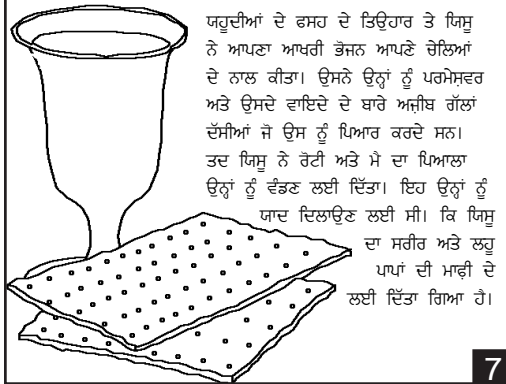 ਯਹੂਦੀਆਂ ਦੇ ਫਸਹ ਦੇ ਤਿਉਹਾਰ ਤੇ ਯਿਸੂ
ਨੇ ਆਪਣਾ ਆਖਰੀ ਭੋਜਨ ਆਪਣੇ ਚੇਲਿਆਂ
ਦੇ ਨਾਲ ਕੀਤਾ। ਉਸਨੇ ਉਨ੍ਹਾਂ ਨੂੰ ਪਰਮੇਸ਼ਵਰ
ਅਤੇ ਉਸਦੇ ਵਾਇਦੇ ਦੇ ਬਾਰੇ ਅਜੀਬ ਗੱਲਾਂ
ਦੱਸੀਆਂ ਜੋ ਉਸ ਨੂੰ ਪਿਆਰ ਕਰਦੇ ਸਨ।
ਤਦ ਯਿਸੂ ਨੇ ਰੋਟੀ ਅਤੇ ਮੈ ਦਾ ਪਿਆਲਾ
ਉਨ੍ਹਾਂ ਨੂੰ ਵੰਡਣ ਲਈ ਦਿੱਤਾ। ਇਹ ਉਨ੍ਹਾਂ ਨੂੰ
ਯਾਦ ਦਿਲਾਉਣ ਲਈ ਸੀ। ਕਿ ਯਿਸੂ
ਦਾ ਸਰੀਰ ਅਤੇ ਲਹੂ
ਪਾਪਾਂ ਦੀ ਮਾਫ਼ੀ ਦੇ
ਲਈ ਦਿੱਤਾ ਗਿਆ ਹੈ।
7